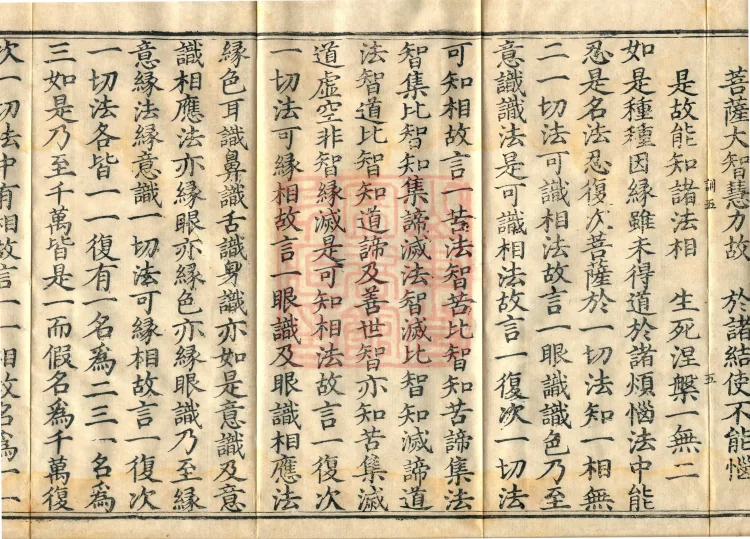 菩薩大智慧力故　於諸結使不能惱
訓五　五
是故能知諸法相　生死涅槃一無二
如是種種因縁雖未得道於諸煩惱法中能
忍是名法忍復次菩薩於一切法知一相無
二一切法可識相法故言一眼識識色乃至
意識識法是可識相法故言一復次一切法
可知相故言一苦法智苦比智知苦諦集法
智集比智知集諦滅法智滅比智知滅諦道
法智道比智知道諦及善世智亦知苦集滅
道虛空非智縁滅是可知相法故言一復次
一切法可縁相故言一眼識及眼識相應法
縁色耳識鼻識舌識身識亦如是意識及意
識相應法亦縁眼亦縁色亦縁眼識乃至縁
意縁法縁意識一切法可縁相故言一復次
一切法各皆一一復有一名為二三一名為
三如是乃至千萬皆是一而假名為千萬復
次一切法中有相故言一一相故名為一一